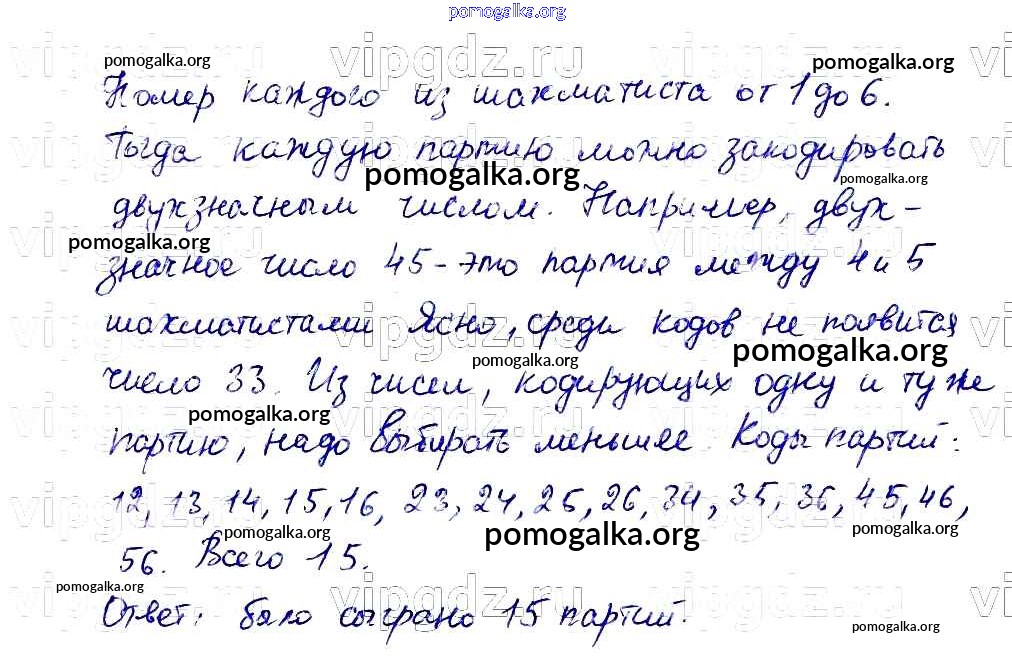 pomogalka.org
vipgdz.ru vipgdz.ru vi
pomogalka.org pomogalka.org
Номер каждого из шахматиста от 1 до 6.
Тогда каждую партию можно закодировать
pomogalka.org pomogalka.org
двухзначным числом. Например, двух-
pomogalka.org
значное число 45 - это партия между 4 и 5
шахматистами Ясно, среди кодов не появится
pomogalka.org pomogalka.org
число 33. Из чисел, кодирующих одну и ту же
pomogalka.org
партию, надо выбирать меньшее. Коды партий:
12, 13, 14, 15, 16, 23, 24, 25, 26, 34, 35, 36, 45, 46,
pomogalka.org pomogalka.org pomogalka.org
56. Всего 15.
pomogalka.org
Ответ: было сыграно 15 партий.
pomogalka.org